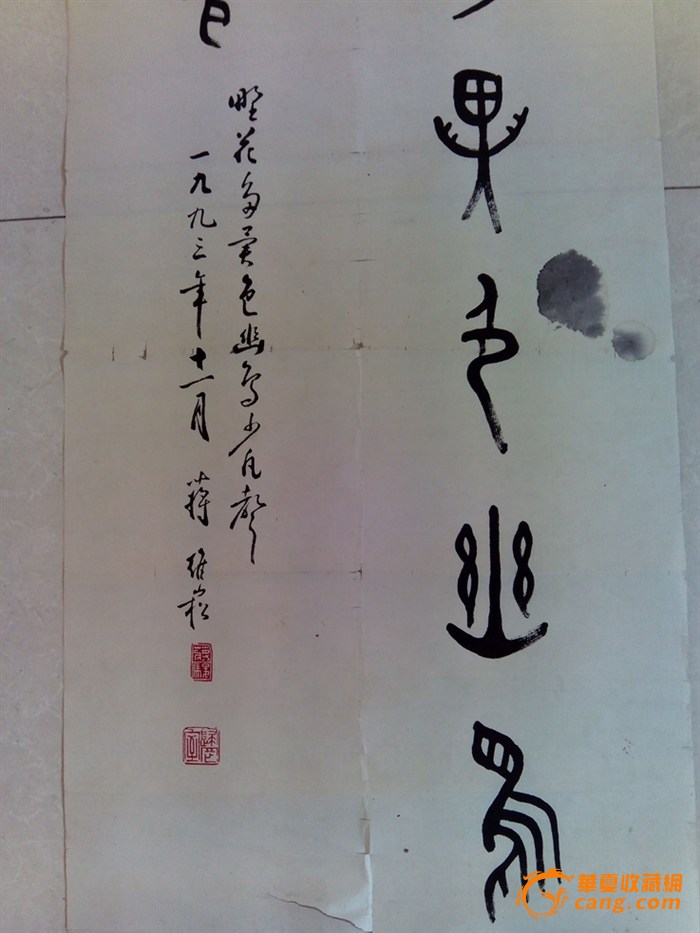 異色幽鳥
野花多異色幽鳥少凡聲
一九九三年十一月 蔣維崧
華夏收藏網
cang.com